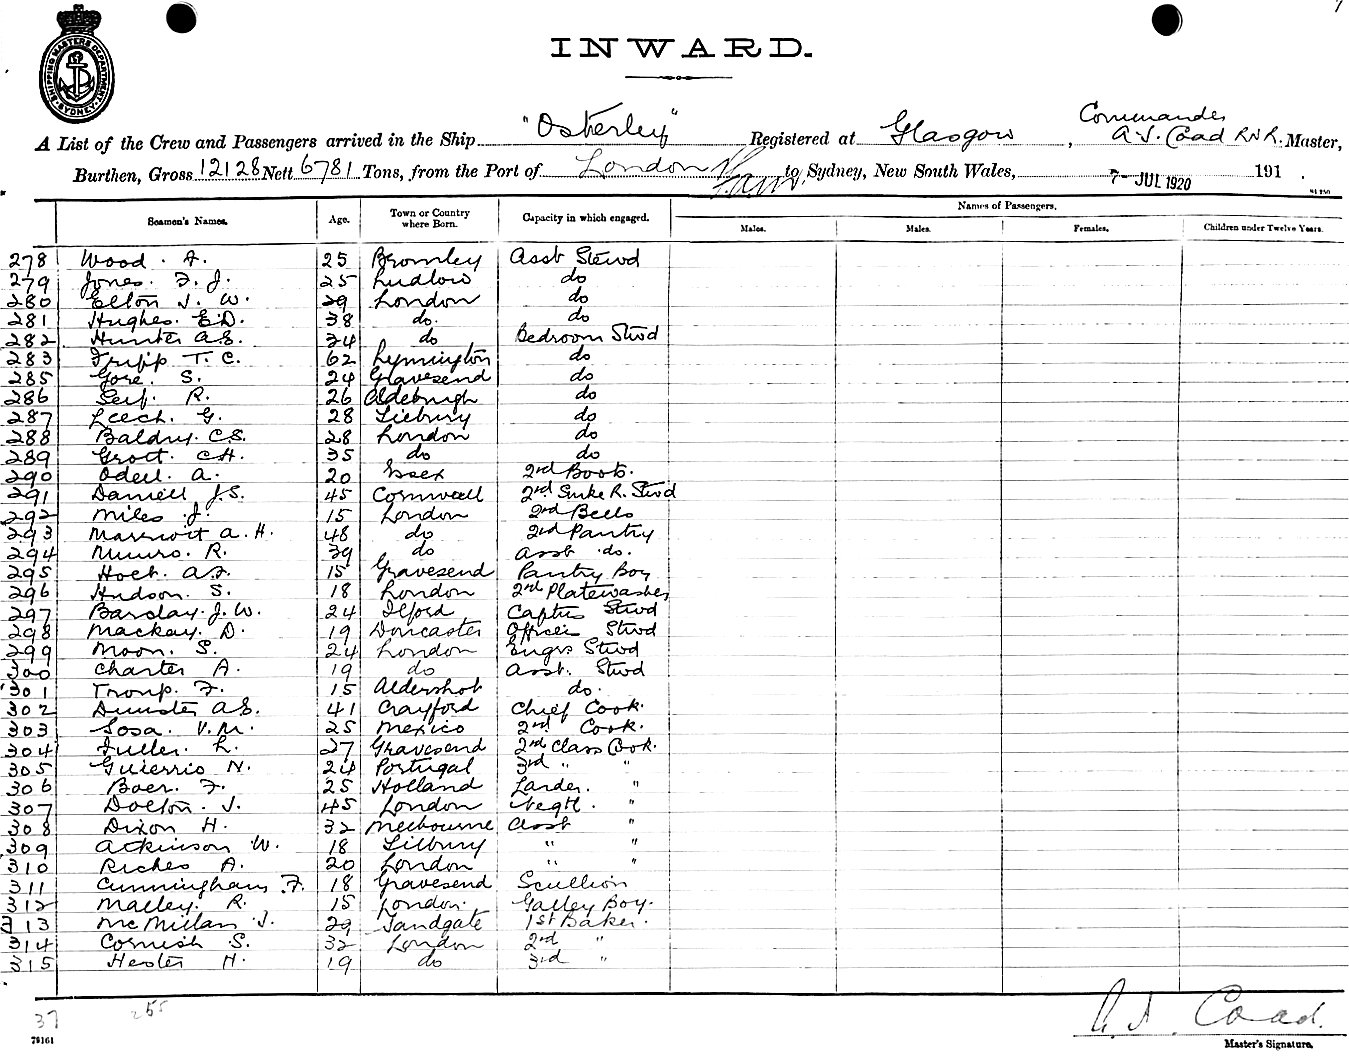 7
SHIPPING MASTERS DEPARTMENT SYDNEY
INWARD.
A List of the Crew and Passengers arrived in the Ship "Osterley" Registered at Glasgow, Commander A. J. Coad R.N.R. Master,
Burthen, Gross 12128 Nett 6781 Tons, from the Port of London to Sydney, New South Wales, 7- JUL 1920 191 .
Seamen's Names. Age. Town or Country where Born. Capacity in which engaged. Names of Passengers.
Males. Males. Females. Children under Twelve Years.
278 Wood. A. 25 Bromley Asst Stewd
279 Jones. F. J. 25 Ludlow do
280 Elton J. W. 29 London do
281 Hughes. E.D. 38 do. do
282 Hunter A.S. 34 do Bedroom Stwd
283 Tripp T. C. 62 Lymington do
285 Gore. S. 24 Gravesend do
286 Self. R. 26 Aldeburgh do
287 Leech. G. 28 Tilbury do
288 Baldry. C.S. 28 London do
289 Grott. C.H. 35 do do
290 Odell. A. 20 Essex 2nd Boots.
291 Daniell J.S. 45 Cornwall 2nd Smke R. Stwd
292 Miles J. 15 London 2nd Bells
293 Marriott A. H. 48 do 2nd Pantry
294 Munro. R. 39 do Asst do.
295 A.F. 15 Gravesend Pantry Boy
296 Hudson. S. 18 London 2nd Platewasher
297 Barclay. J. W. 24 Ilford Capt's Stwd
298 Mackay. D. 19 Doncaster Officers Stwd
299 Moon. S. 24 London Engrs Stwd
300 Charter A. 19 do Asst. Stwd
301 Tromp. F. 15 Aldershot do.
302 Dunster A.S. 41 Crayford Chief Cook.
303 Sosa. V. M. 25 Mexico 2nd Cook.
304 Fuller. L. 27 Gravesend 2nd Class Cook.
305 Guierrio N. 24 Portugal 3rd " "
306 Boer. F. 25 Holland Larder. "
307 Dolton. J. 45 London Vegtl. "
308 Dixon H. 32 Melbourne Asst "
309 Atkinson W. 18 Tilbury " "
310 Riches A. 20 London " "
311 Cunningham. F. 18 Gravesend Scullion
312 Malley. R. 15 London. Galley Boy.
313 McMillan J. 29 Sandgate 1st Baker.
314 Cornish S. 32 London 2nd "
315 Hester H. 19 do 3rd "
37 255
79161
A. J. Coad.
Master's Signature.